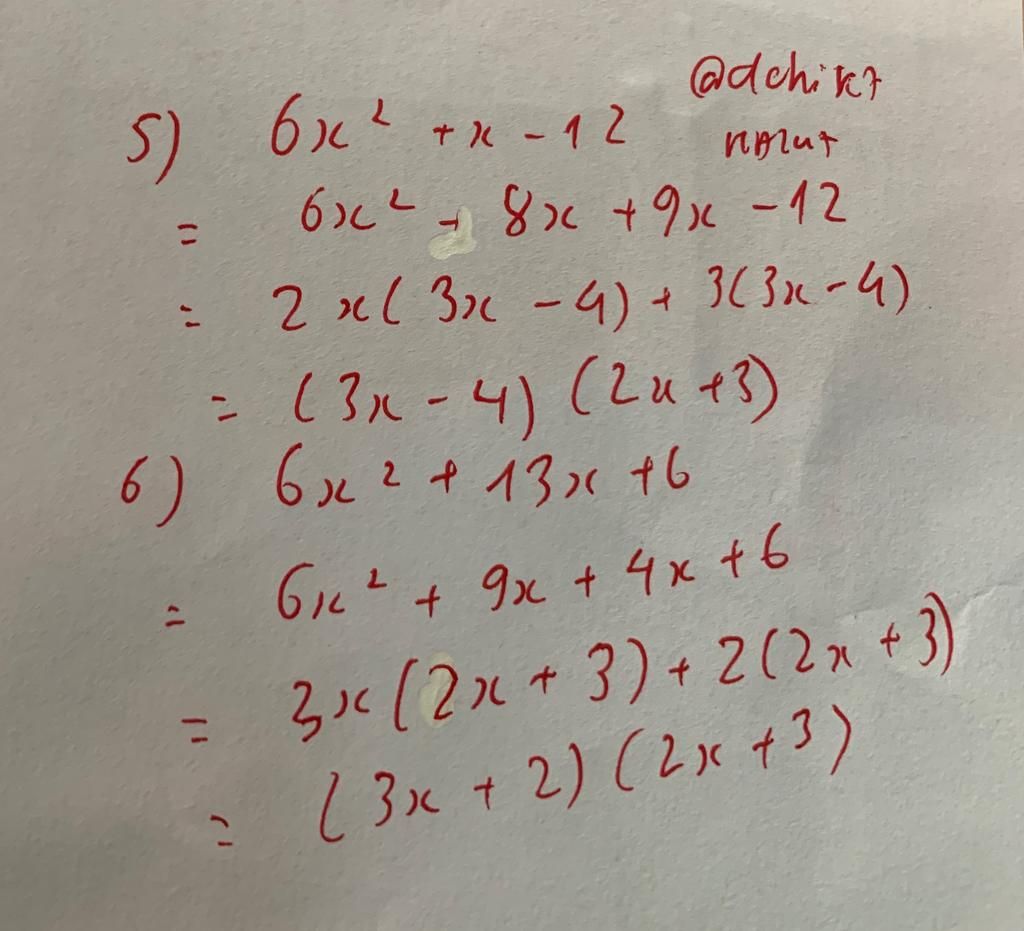 @dchikt
5) 6x² + x - 12
= 6x² - 8x + 9x - 12
= 2x(3x - 4) + 3(3x - 4)
= (3x - 4) (2x + 3)
6) 6x² + 13x + 6
= 6x² + 9x + 4x + 6
= 3x(2x + 3) + 2(2x + 3)
= (3x + 2) (2x + 3)